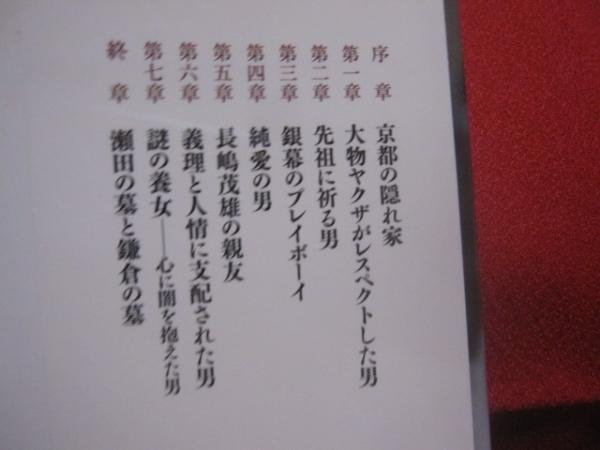 序章 京都の隠れ家
第一章 大物ヤクザがレスペクトした男
第二章 先祖に祈る男
第三章 銀幕のプレイボーイ
第四章 純愛の男
第五章 長嶋茂雄の親友
第六章 義理と人情に支配された男
第七章 謎の養女――心に闇を抱えた男
終章 瀬田の墓と鎌倉の墓